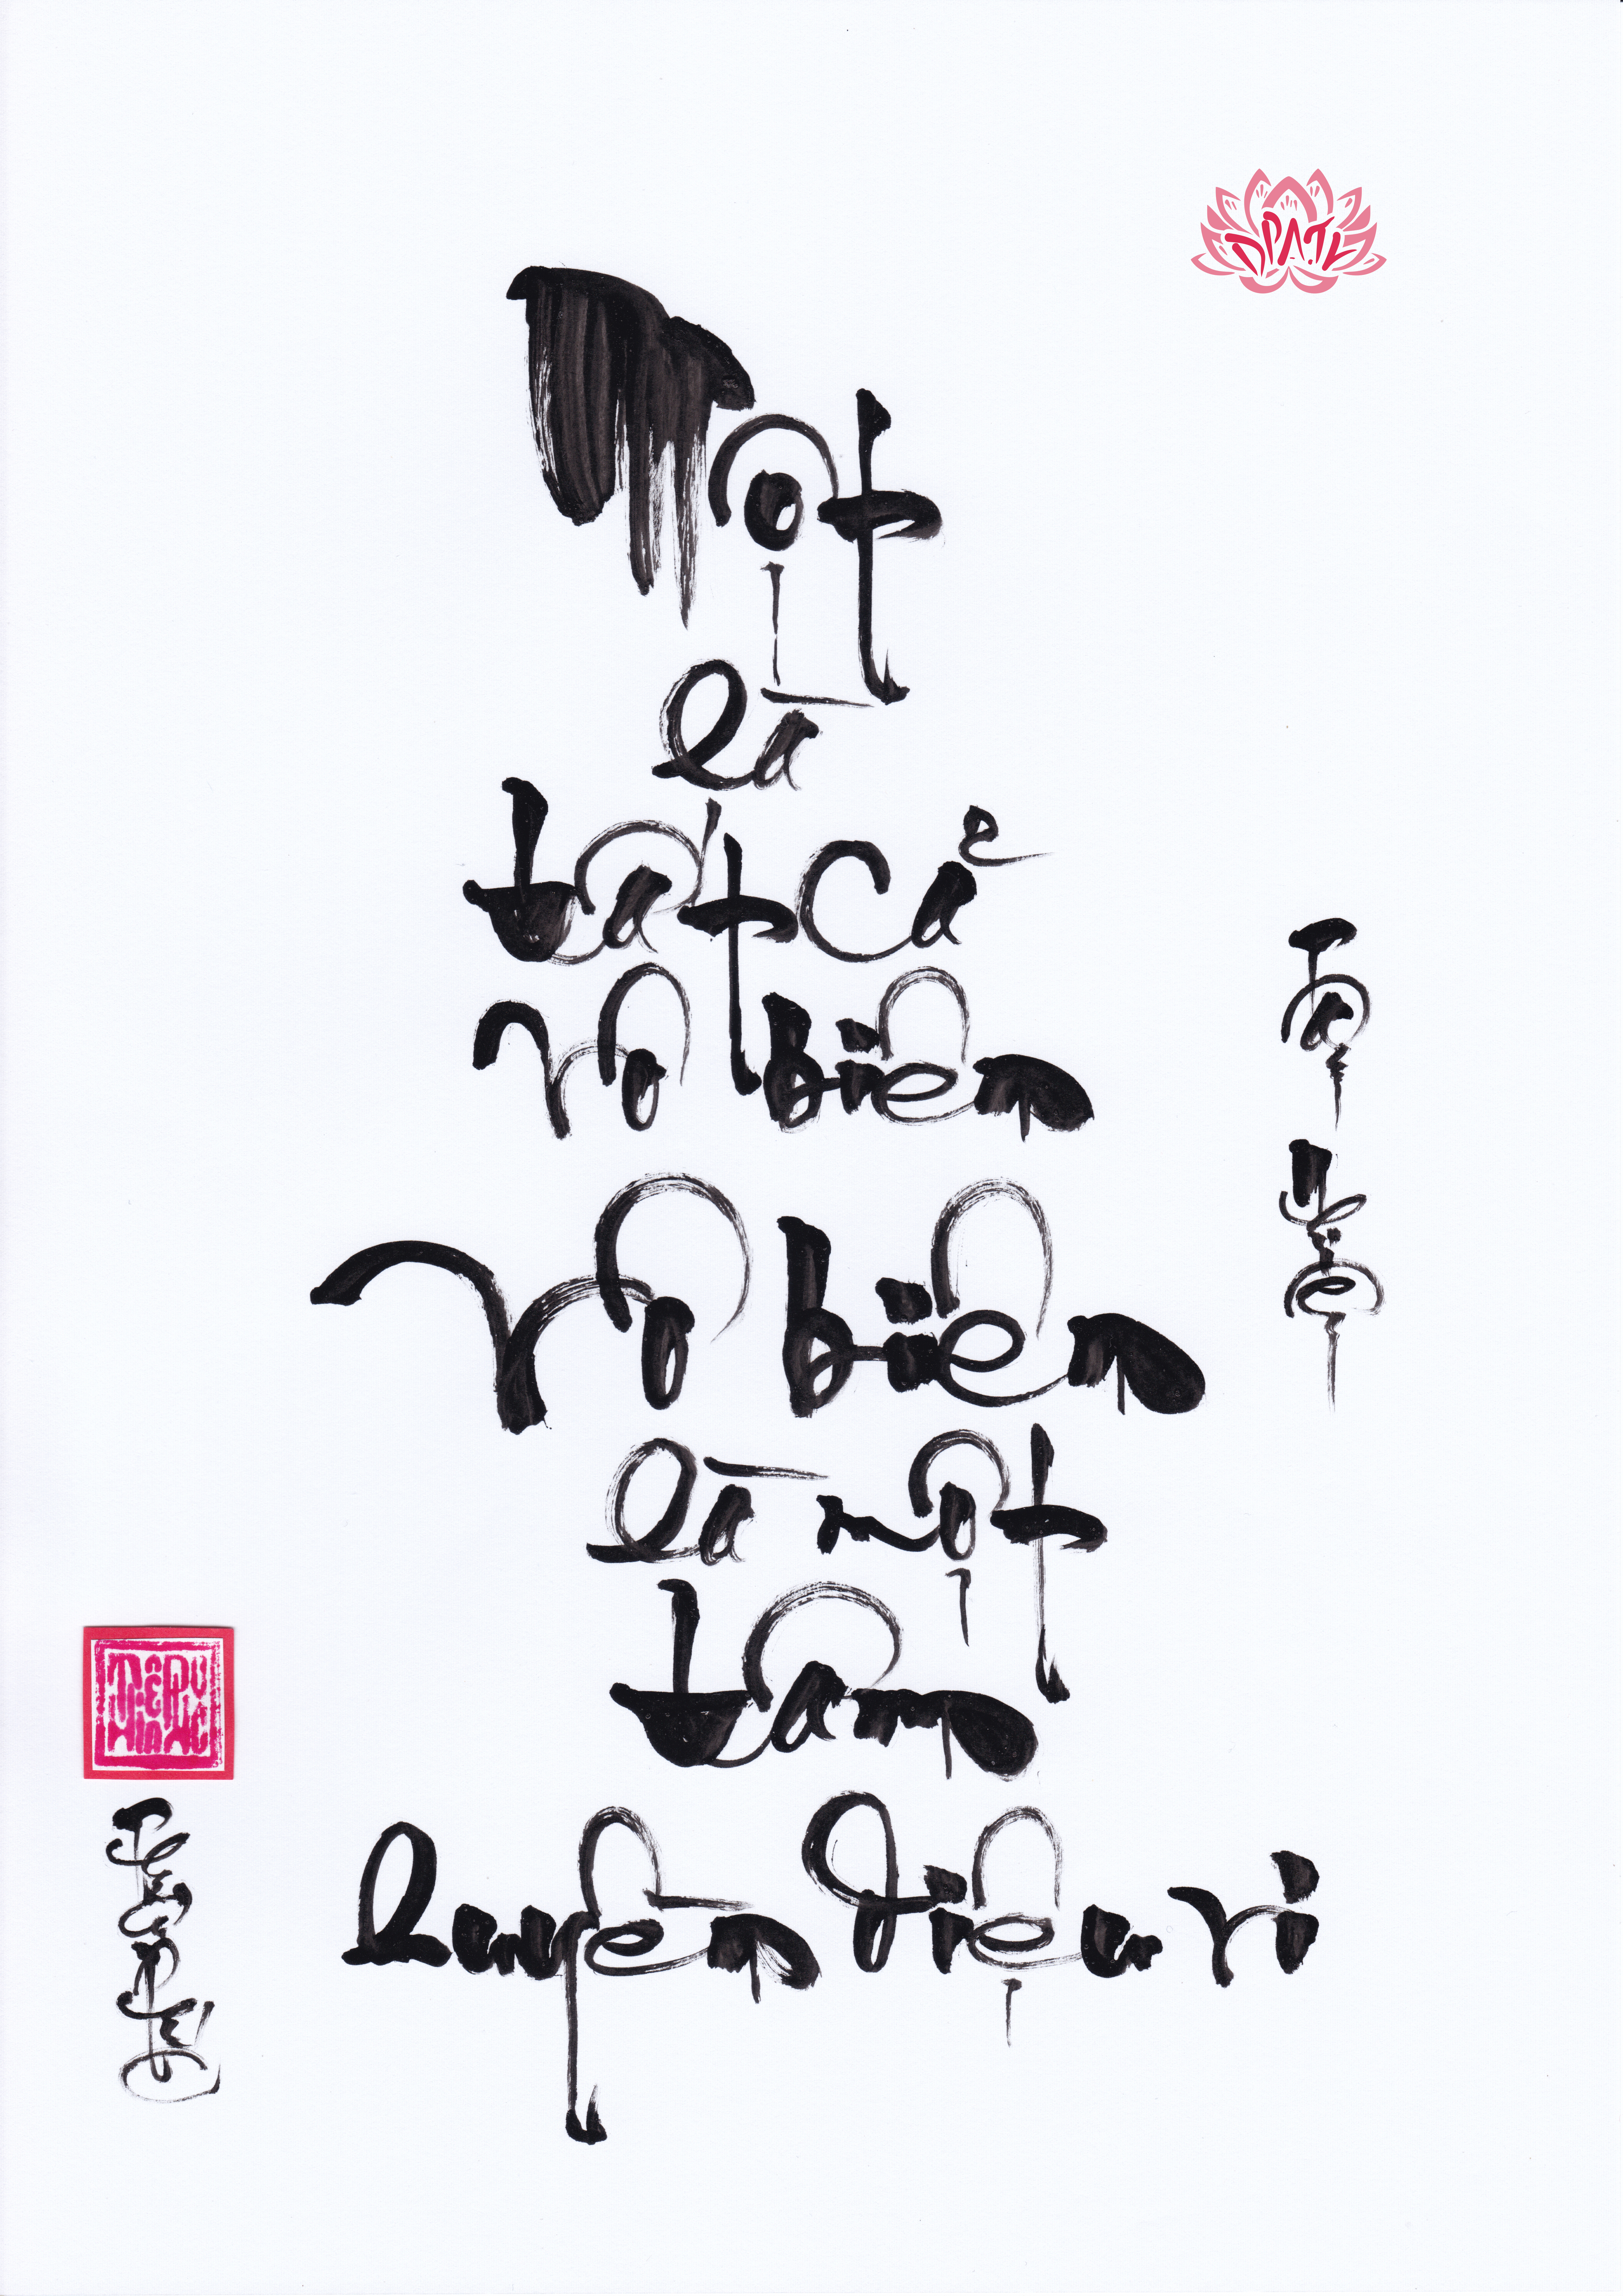 DPATK
Một
là
tất cả
vô biên
vô biên
là một
tâm
huyền diệu vi